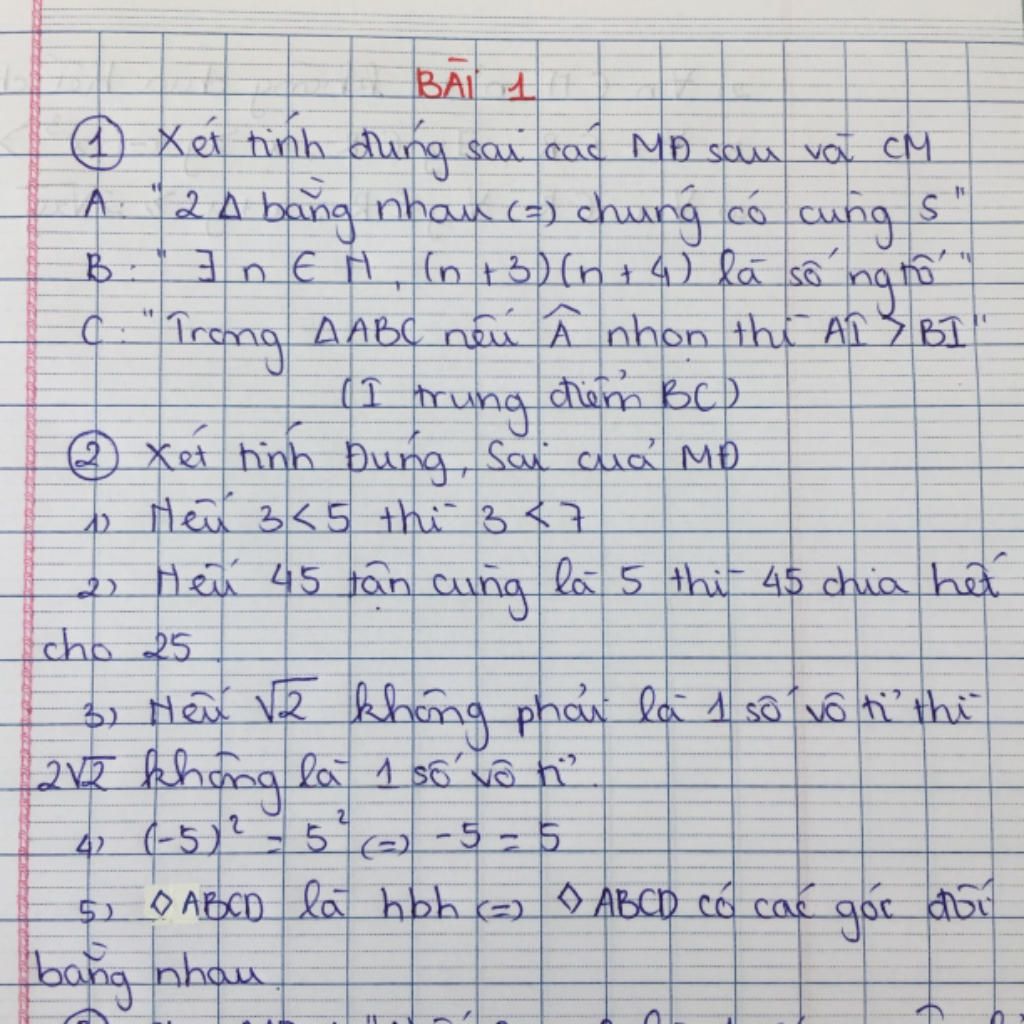 BÀI 1
① Xét tính đúng sai các MĐ sau và CM
A: "2 Δ bằng nhau (=) chúng có cùng S"
B: "∃ n ∈ N, (n + 3)(n + 4) là số ng tố"
C: "Trong ΔABC nếu Â nhọn thì AI > BI"
(I trung điểm BC)
② Xét tính Đúng, Sai của MĐ
1) Nếu 3 < 5 thì 3 < 7
2) Nếu 45 tận cùng là 5 thì 45 chia hết
cho 25
3) Nếu √2 không phải là 1 số vô tỉ thì
2√2 không là 1 số vô tỉ.
4) (-5)² = 5² (=) -5 = 5
5) ◇ABCD là hbh (=) ◇ABCD có các góc đối
bằng nhau.